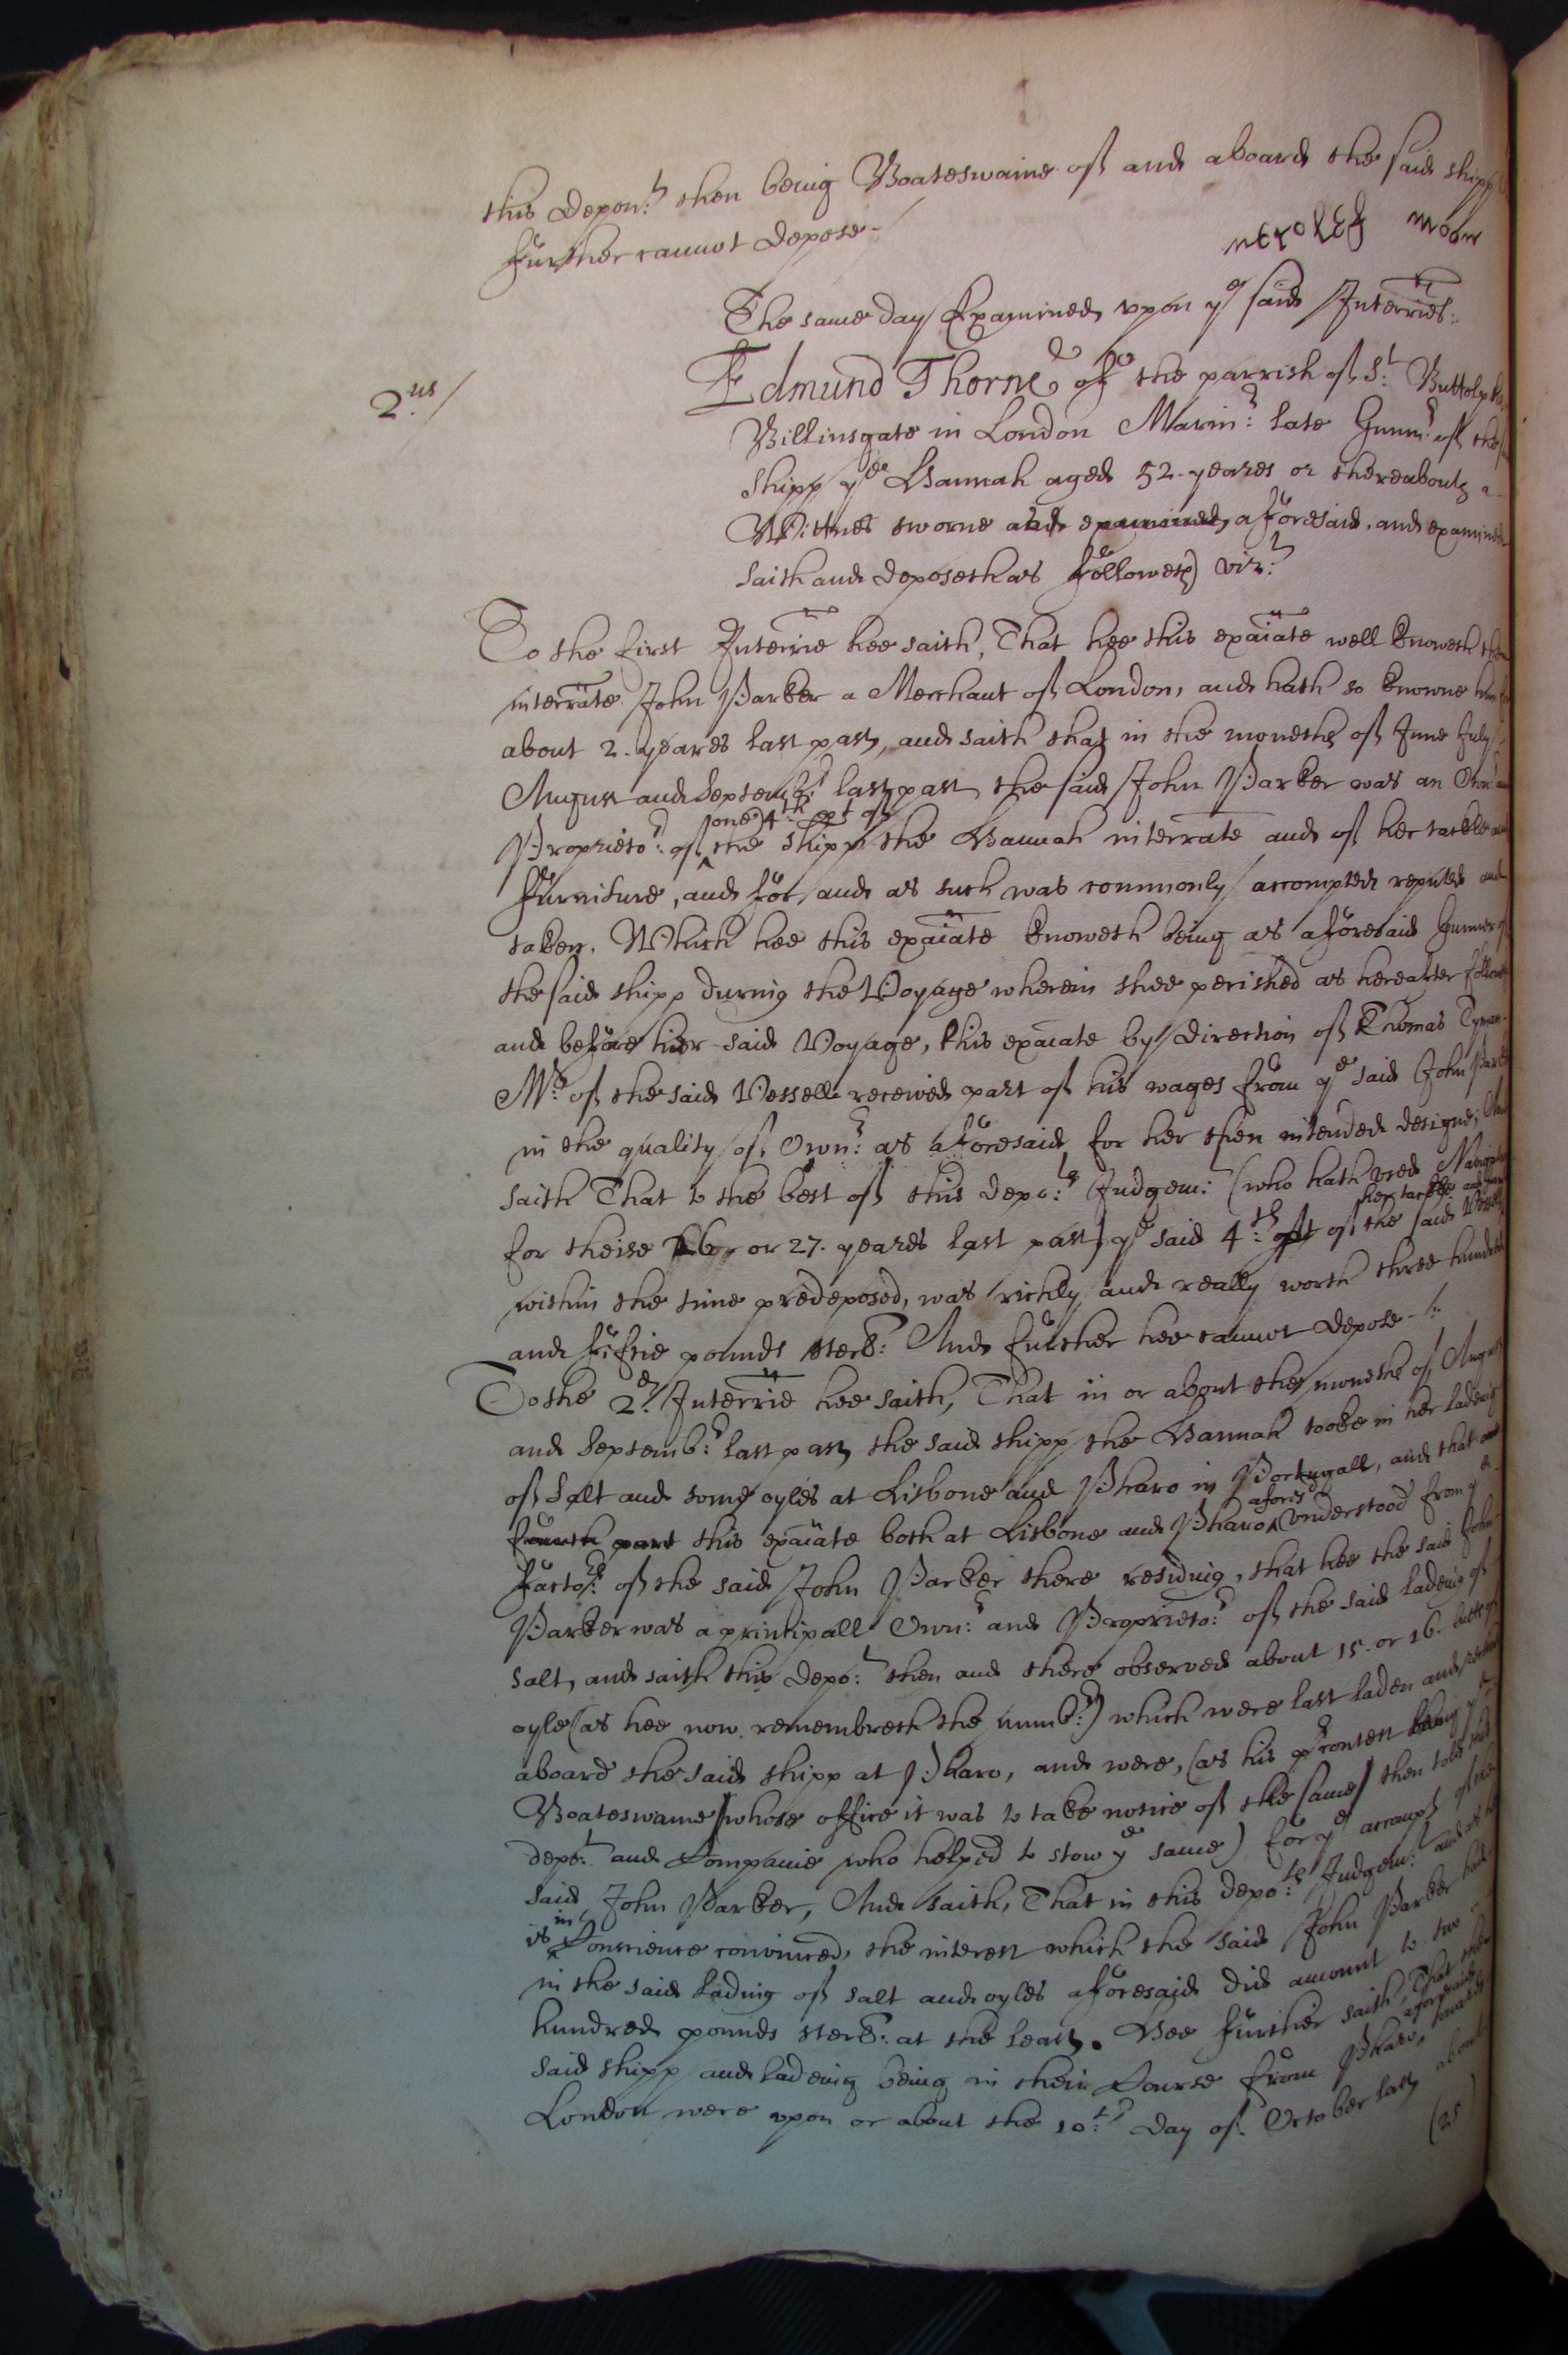 this Depon:t then being Boateswaine of and aboard the said shipp
further cannot depose-
The same day Examined upon ye said Interries:
2.us/
Edmund Thorne of the parrish of St: Buttolphs
Billinsgate in London Marin:r late Gunnr of the
shipp ye Hannah aged 52. yeares or thereabouts a
Wittnes sworne and examined aforesaid, and examined
saith and deposeth as followeth) vizt:
To the first Interrie hee saith, That hee this exaiate well knoweth the
interrate John Parker a Merchant of London, and hath so knowne him for
about 2. yeares last past, and saith that in the moneths of June July
August and Septemb:r last past the said John Parker was an Own:r and
one 4th: pt of
Proprieto:r of the shipp the Hannah interrate and of her tackle and
furniture, and for, and as such was commonly accompted reputed and
taken. Which hee this exaiate knoweth being as aforesaid Gunner of
the said shipp during the Voyage wherein shee perished as hereafter followes
and before her said Voyage, this exaiate by direction of Thomas
Mr: of the said Vessell received part of his wages from ye said John Parker
in the quality of Own:r as aforesaid for her then intended designe; And
saith That to the best of this depo:ts Judgem:t (who hath used Navigation
her tackle and
for theise 26 or 27. yeares last past) ye said 4th: pt of the said Vessell
within the time predeposed, was richly and really worth three hundred
and fiftie pounds sterl: And further hee cannot depose-/:
To the 2d: Interrie hee saith, That in or about the moneths of August
and Septemb:r last past the said shipp the Hannah tooke in her ladeing
of Salt and some oyles at Lisbone and Pharo in Portugall, and that one
aforesd
fourth part this exaiate both at Lisbone and Pharo understood from ye
facto:rs of the said John Parker there residing, that hee the said John
Parker was a principall Own:r and Proprieto:r of the said ladeing of
salt, and saith this depo:t then and there observed about 15. or 16. butts of
oyle (as hee now remembreth the numb:r) which were last laden and
aboard the said shipp at Pharo, and were, (as his precontest being ye
Boateswaine whose office it was to take notice of the same then told this
depo:t and Companie who helped to stow ye same) for ye accompt of the
said John Parker, And saith, That in this depo:ts Judgem:t and as hee
in
is Conscience convinced, the interest which the said John Parker had
in the said lading of salt and oyles aforesaid did amount to two
hundred pounds sterl: at the least. Hee further saith, That the
aforesaid
said shipp and ladeing being in their Course from Pharo towards
London were upon or about the 10:th day of October last about
(25